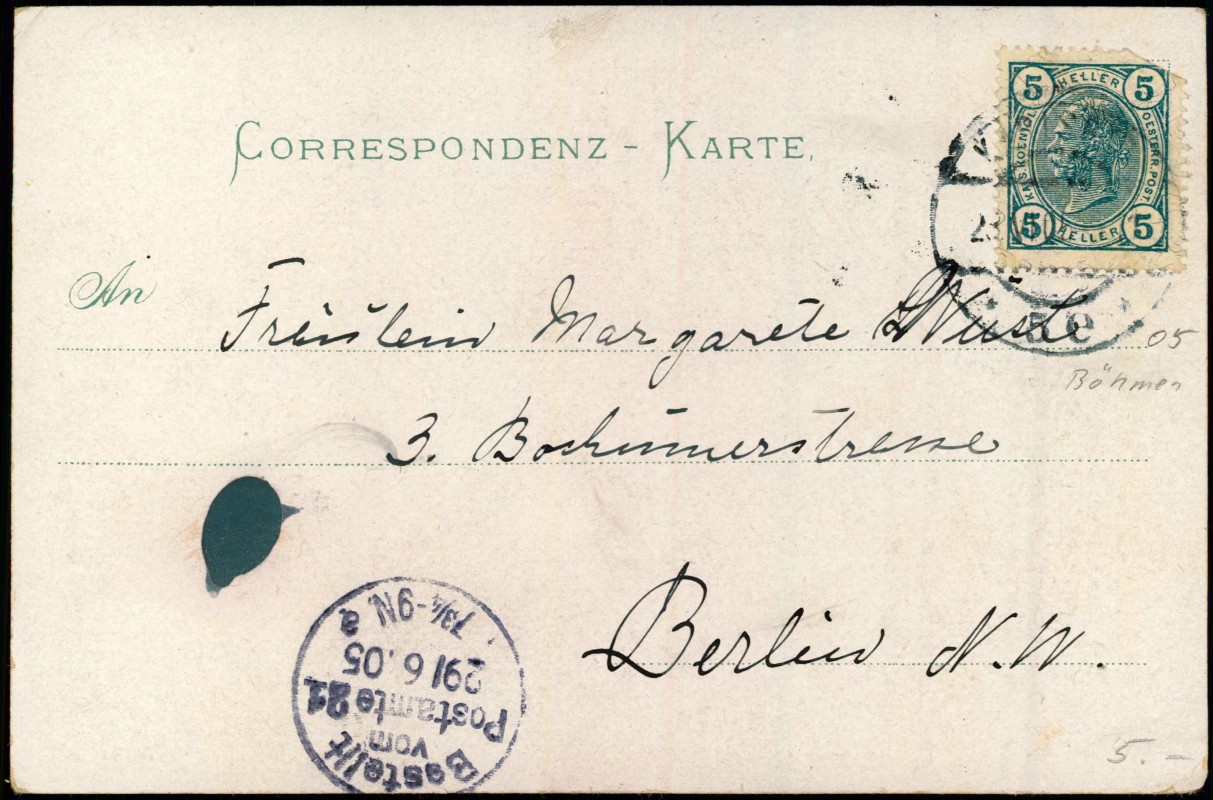 CORRESPONDENZ - KARTE.
5 HELLER 5
KAIS. KOENIGL. OESTERR. POST
5 HELLER 5
An
Fräulein Margarete Wüste
05
Böhmen
3. Bochumerstrasse
Berlin N. W.
Bestellt
vom
Postamte 21
29/6.05
7¾-9N.
a
5.-